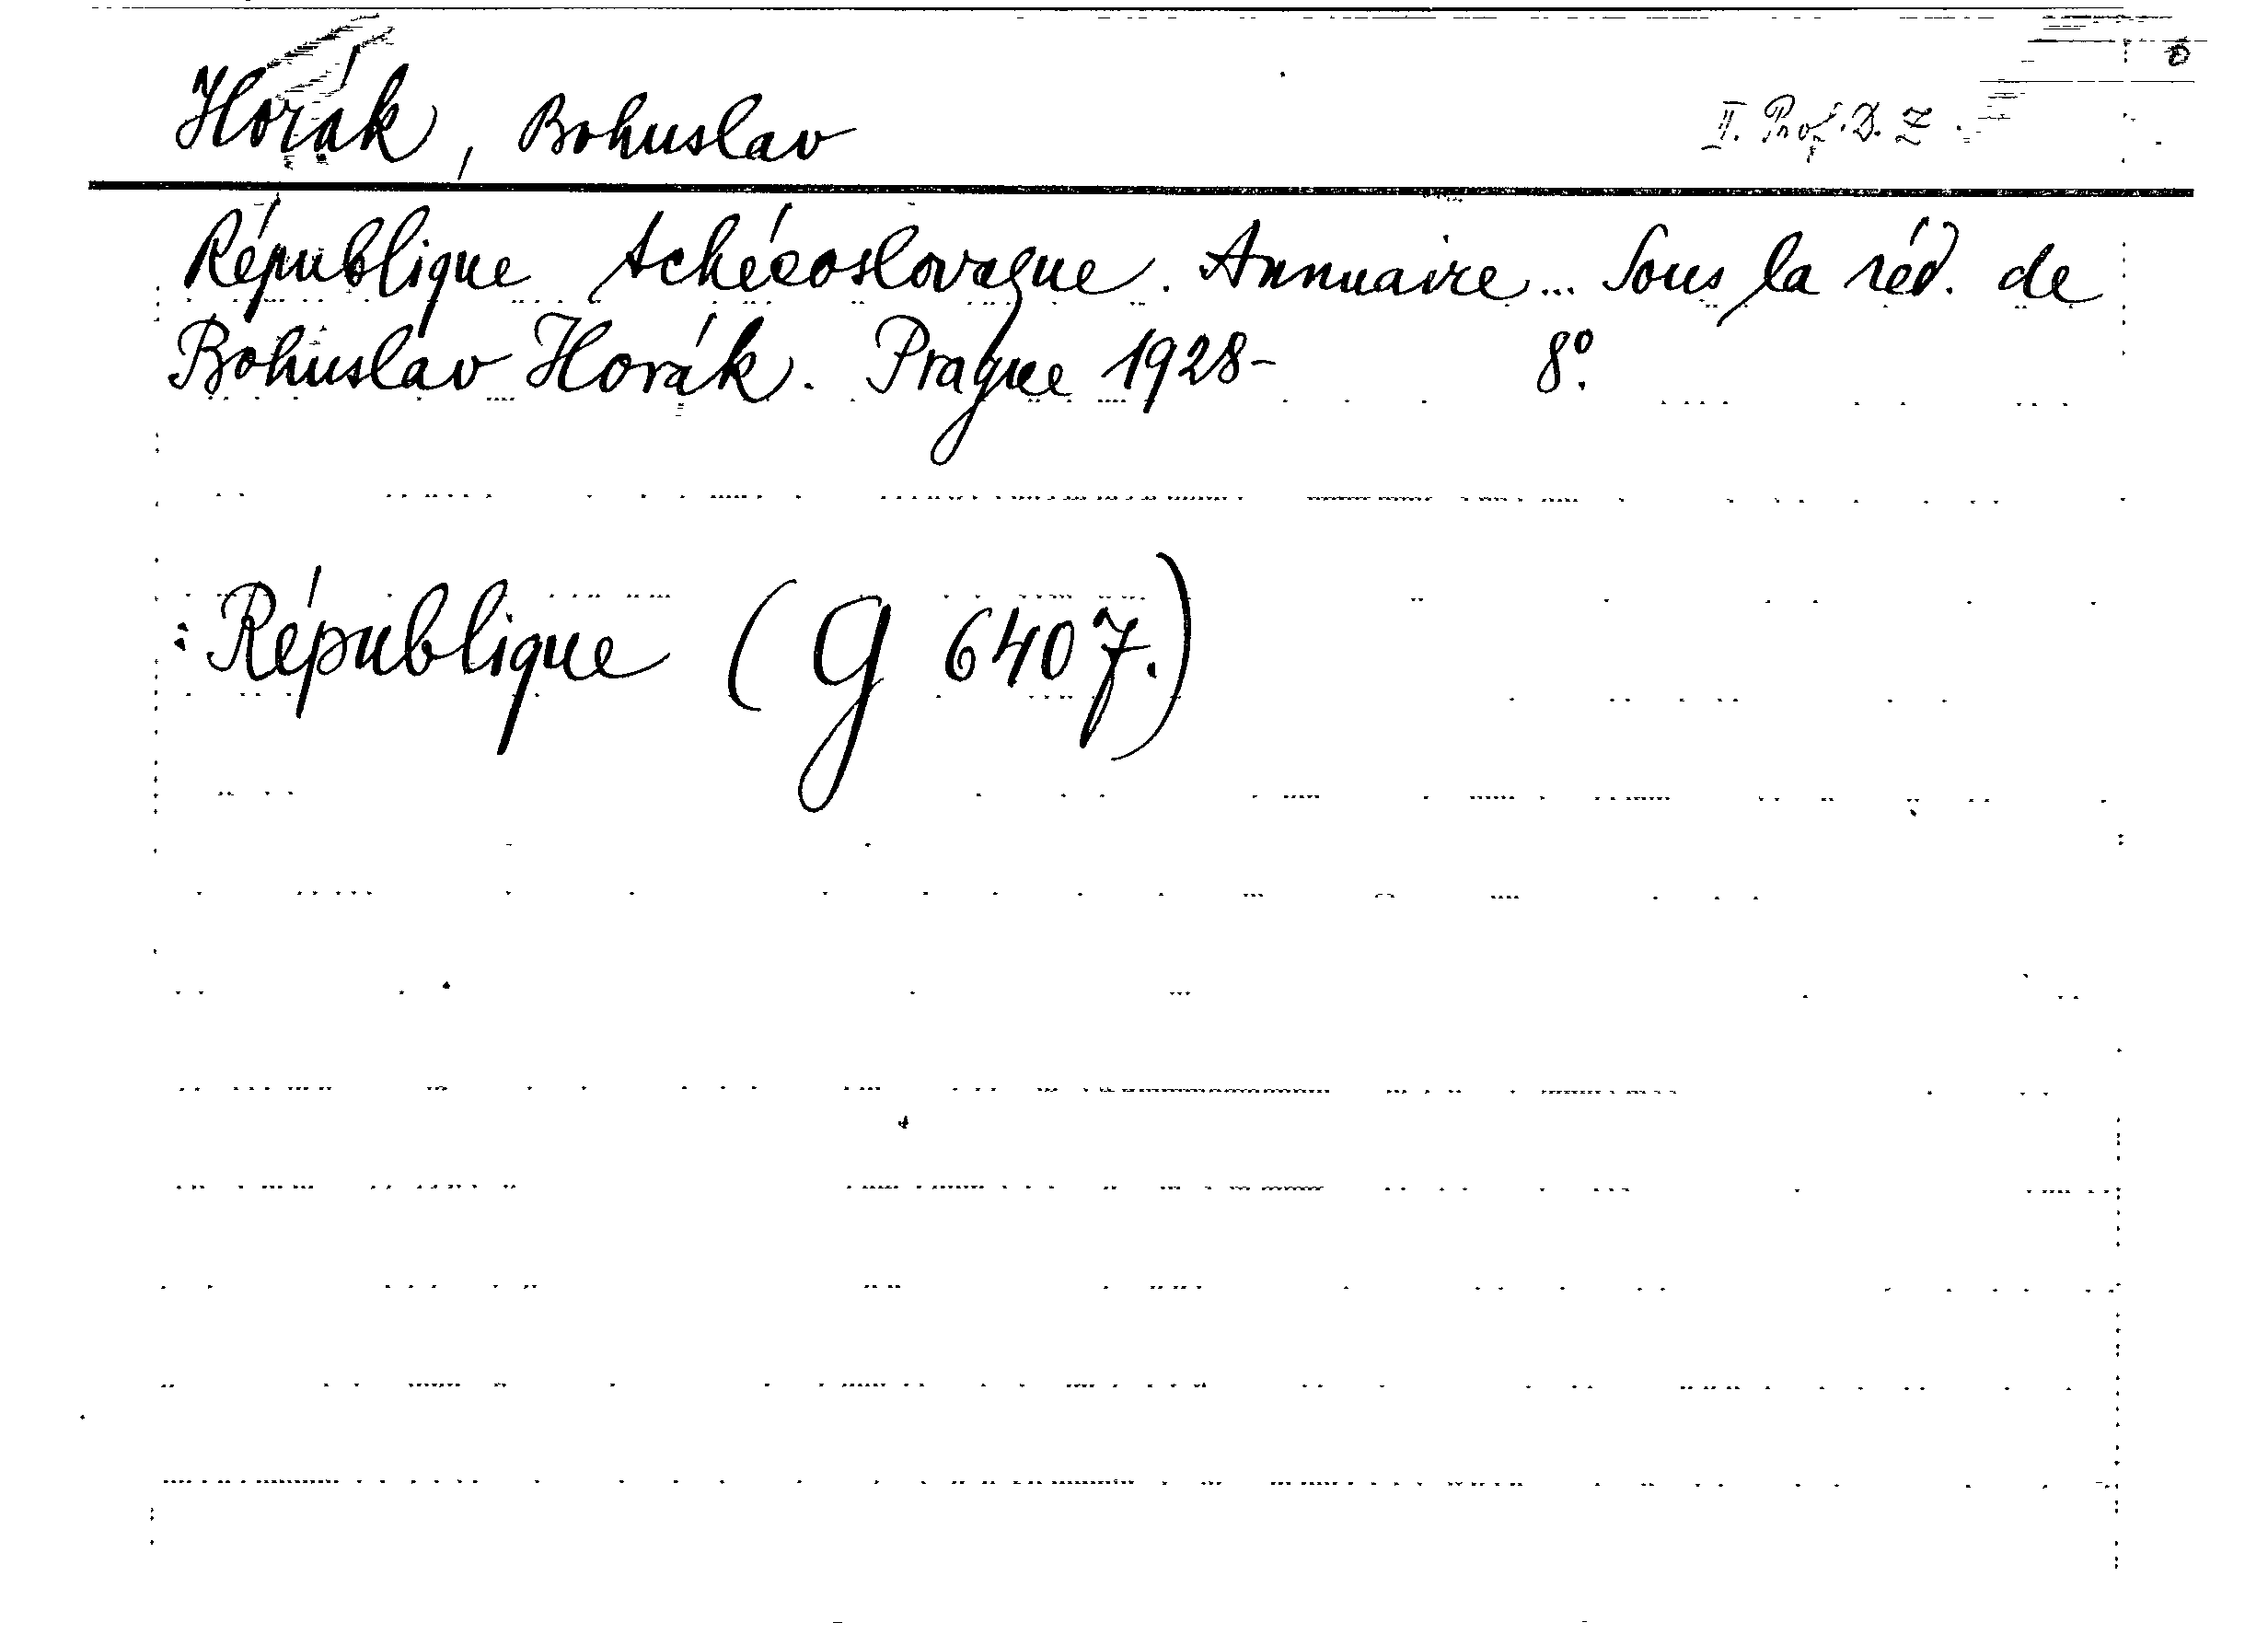 Horák, Bohuslav II. Prof. D. Z.
République tchécoslovaque. Annuaire... Sous la réd. de
Bohuslav Horák. Prague 1928- 8º.
: République (G 6407.)